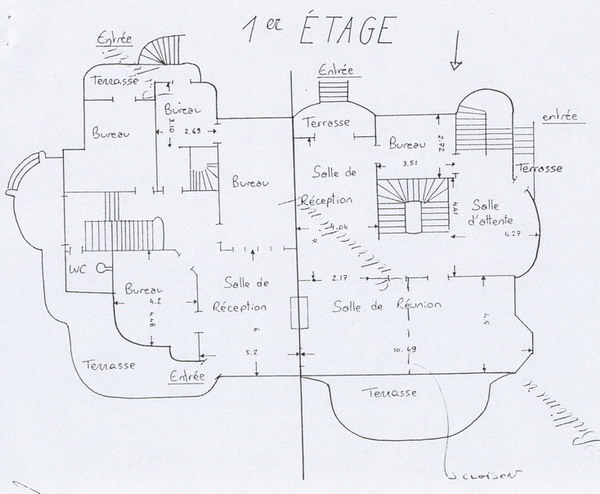 1er ÉTAGE
Entrée
Entrée
entrée
Terrasse
Bureau
3.10
2.69
Bureau
Terrasse
Bureau
2.72
3.51
Terrasse
Bureau
Salle de
Réception
4.04
4.41
Salle
d'attente
4.27
WC
Bureau
4.2
4.48
Salle de
Réception
5.2
2.17
Salle de Réunion
10.49
4.5
Terrasse
Entrée
Terrasse
CLOISON